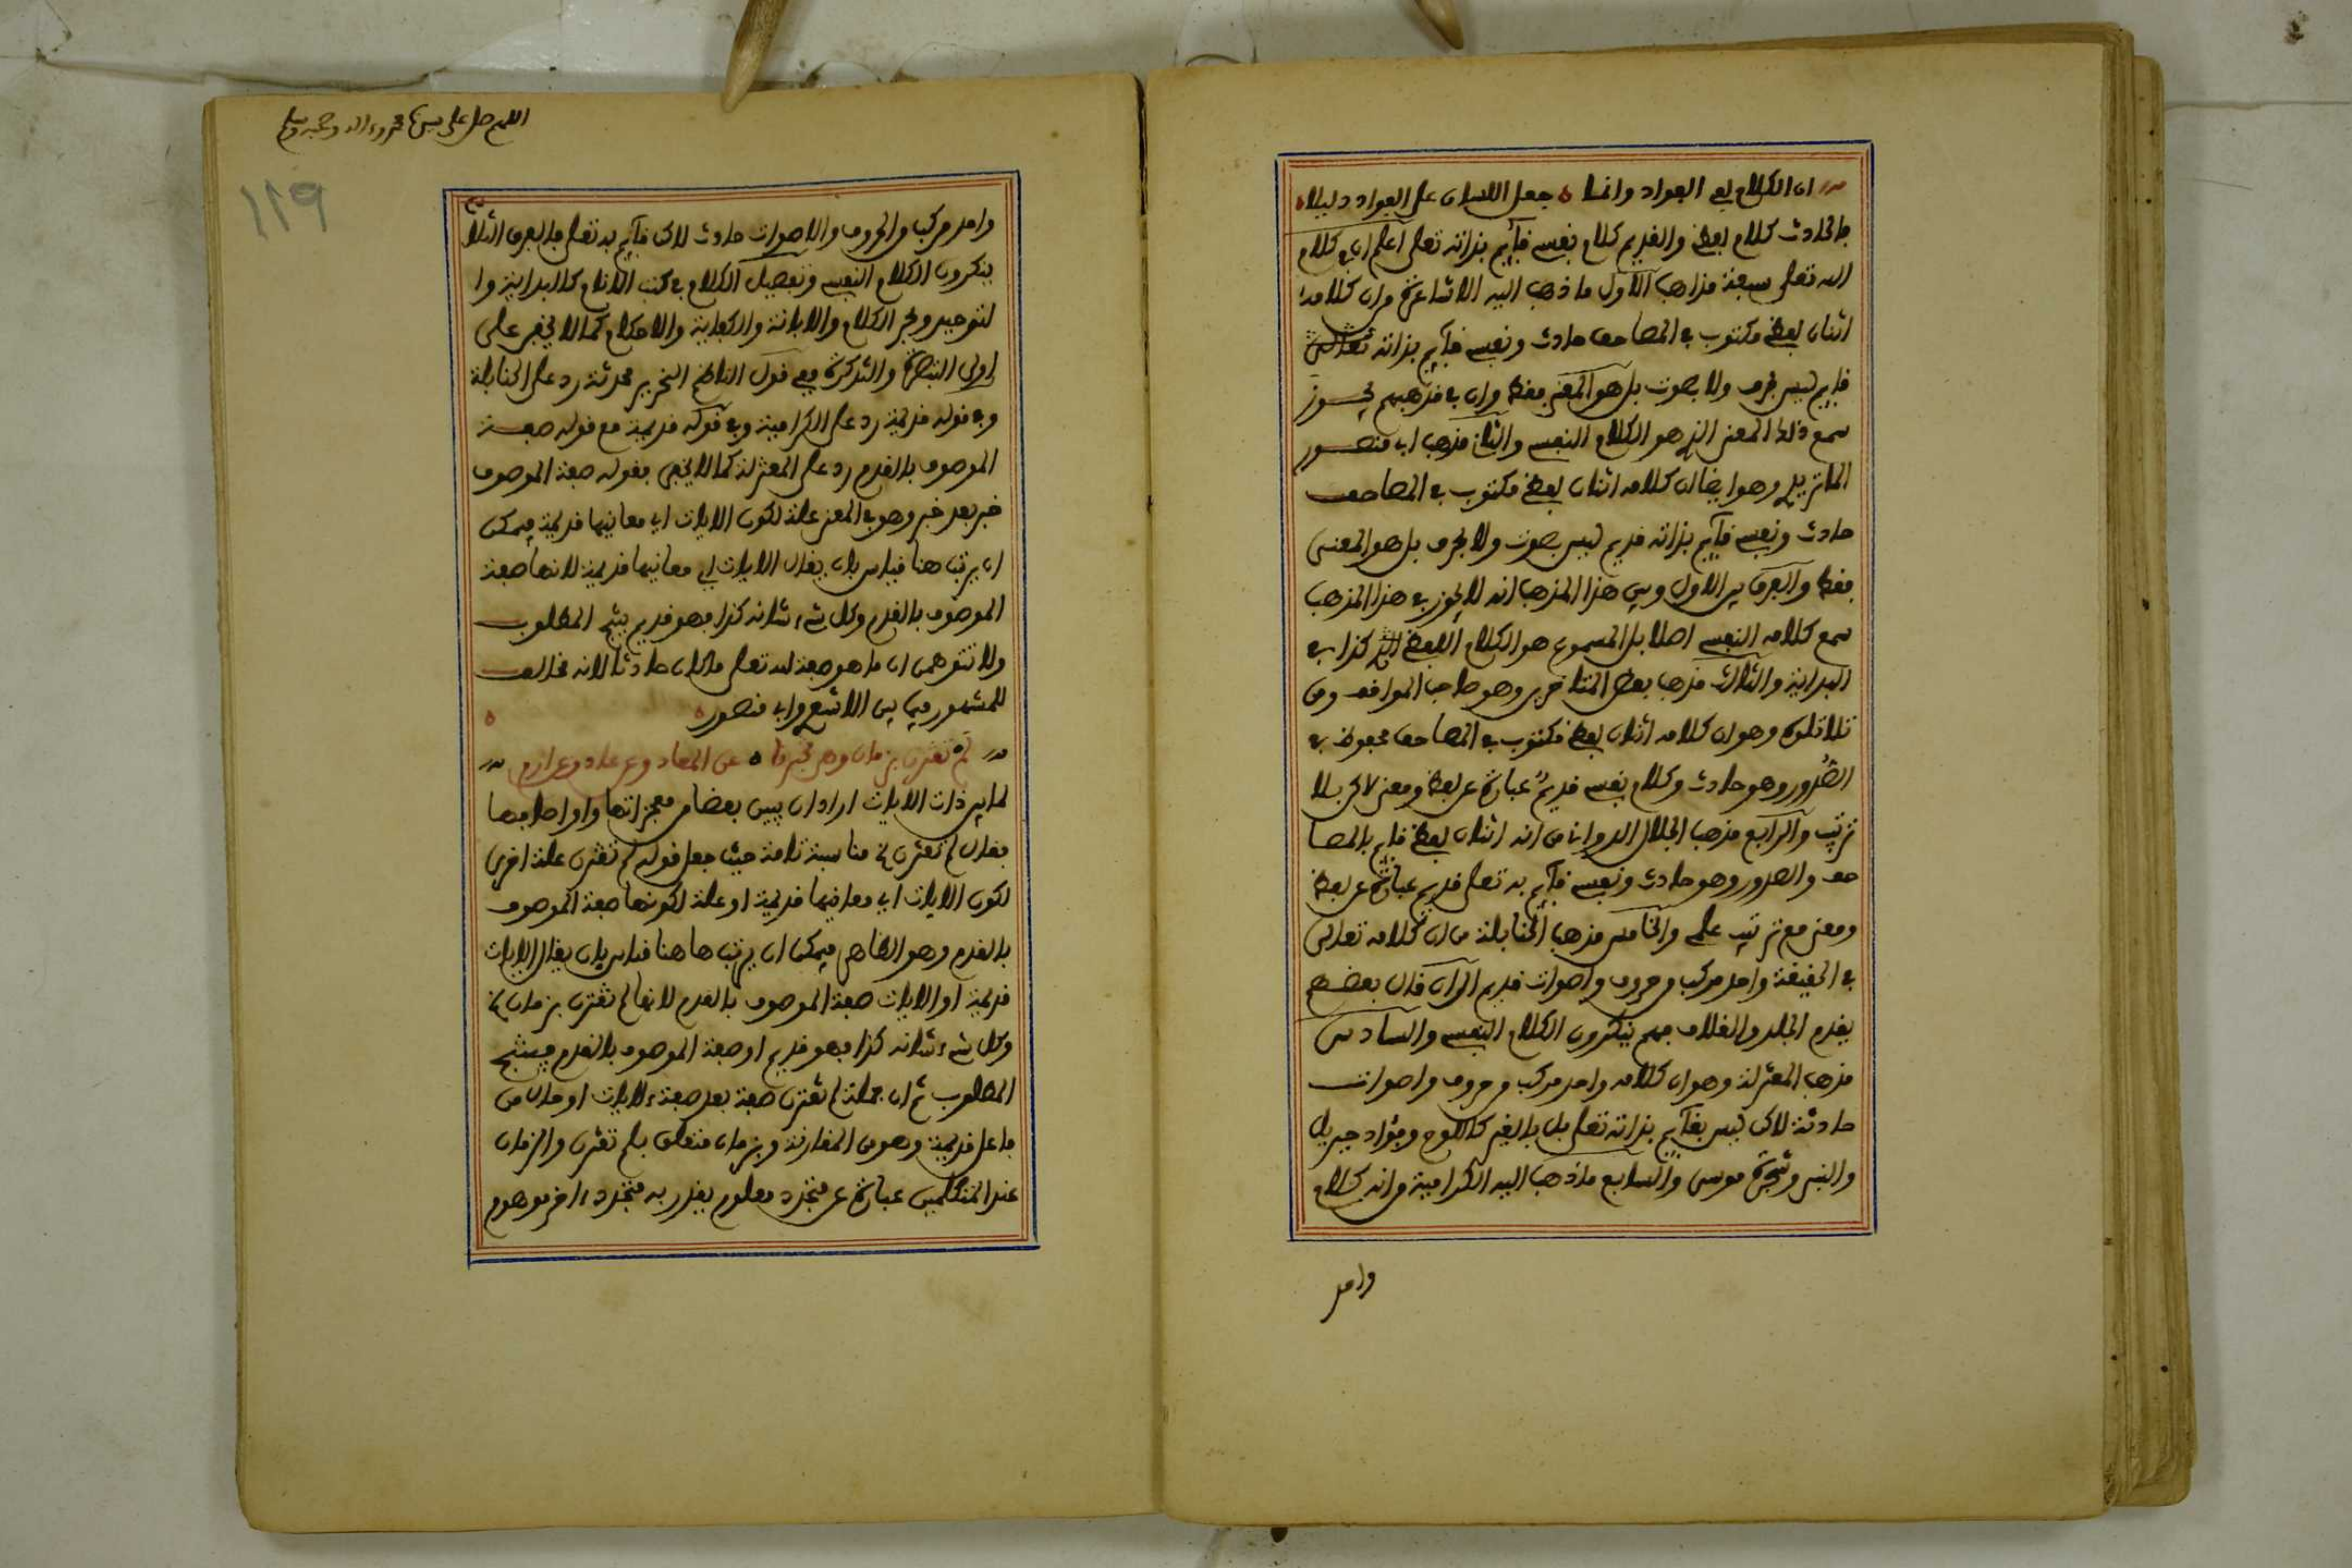 ان الكلام لفي الفؤاد وانما جعل اللسان على الفؤاد دليلا
فالحادث كلام لفظي والقديم كلام نفسي قايم بذاته تعلى اعلم ان في كلام
الله تعلى سبعة مذاهب الاول ما ذهب اليه الاشاعرة من ان كلامه
اثنان لفظي مكتوب في المصاحف حادث ونفسي قايم بذاته تعالى
قديم ليس بحرف ولا صوت بل هو المعنى فقط وان في مذهبهم يجوز
سمع ذلك المعنى الذي هو الكلام النفسي والثاني مذهب ابي منصور
الماتريدي وهو ايضا ان كلامه اثنان لفظي مكتوب في المصاحف
حادث ونفسي قايم بذاته قديم ليس بصوت ولا بحرف بل هو المعنى
فقط والفرق بين الاول وبين هذا المذهب انه لا يجوز في هذا المذهب
سمع كلامه النفسي اصلا بل المسموع هو الكلام اللفظي كذا في
البداية والثالث مذهب بعض المتاخرين وهو صاحب المواقف ومن
تلا تلوه وهو ان كلامه اثنان لفظي مكتوب في المصاحف محفوظ في
الصدور وهو حادث وكلام نفسي قديم عبارة عن لفظ ومعنى لاكن بلا
ترتيب والرابع مذهب الجلال الدواني من انه اثنان لفظي قايم بالمصا
حف والصدور وهو حادث ونفسي قايم به تعلى قديم عبارة عن لفظ
ومعنى مع ترتيب علمي والخامس مذهب الحنابلة من ان كلامه تعالى
في الحقيقة واحد مركب من حروف واصوات قديم الى ان قال بعضهم
بقدم الجلد والغلاف فهم ينكرون الكلام النفسي والسادس
مذهب المعتزلة وهو ان كلامه واحد مركب من حروف واصوات
حادثة لاكن ليس بقايم بذاته تعلى بل بالغير كاللوح وفؤاد جبريل
والنبي وشجرة موسى والسابع ما ذهب اليه الكرامية من انه كلام
واحد
اللهم صل على سيدنا محمد وءاله وصحبه وسلم
119
واحد مركب من الحروف والاصوات حادث لاكن قايم به تعلى فالفرق الثلا
ينكرون الكلام النفسي وتفصيل الكلام في كتب الانام كالبداية وا
لتوحيد وبحر الكلام والابانة والكفاية والاحكام كما لا يخفى على
اولى التبصرة والتذكرة ففي قول الناظم النحرير محدثة رد على الحنابلة
وفي قوله قديمة رد على الكرامية وفي قوله قديمة مع قوله صفة
الموصوف بالقدم رد على المعتزلة كما لا يخفى فقوله صفة الموصوف
خبر بعد خبر وهو في المعنى علة لكون الايات اي معانيها قديمة فيمكن
ان يرتب هنا قياس بان يقال الايات اي معانيها قديمة لانها صفة
الموصوف بالقدم وكل شيء شانه كذا فهو قديم ينتج المطلوب
ولا تتوهمن ان ما هو صفة لله تعلى ماكان حادثا لانه مخالف
للمشهور فيما بين الاشعري وابي منصور
لم تقترن بزمان وهي تخبرنا عن المعاد وعن عاد وعن ارم
لما بين ذات الايات اراد ان يبين بعضا من معجزاتها واوصافها
فقال لم تقترن الخ مناسبة تامة حيث جعل قوله لم تقترن علة اخرى
لكون الايات اي معانيها قديمة او علة لكونها صفة الموصوف
بالقدم وهو الظاهر فيمكن ان يرتب هاهنا قياس بان يقال الايات
قديمة او الايات صفة الموصوف بالقدم لانها لم تقترن بزمان الخ
وكل شيء شانه كذا فهو قديم او صفة الموصوف بالقدم فينتج
المطلوب ثم ان جملة لم تقترن صفة بعد صفة لايات او حال من
فاعل قديمة وهو من المقارنة وبزمان متعلق بلم تقترن والزمان
عند المتكلمين عبارة عن متجدد معلوم يقدر به متجدد ءاخر موهوم